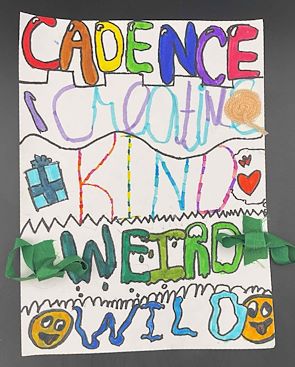 CADENCE
Creative
KIND
WEIRD
WILD